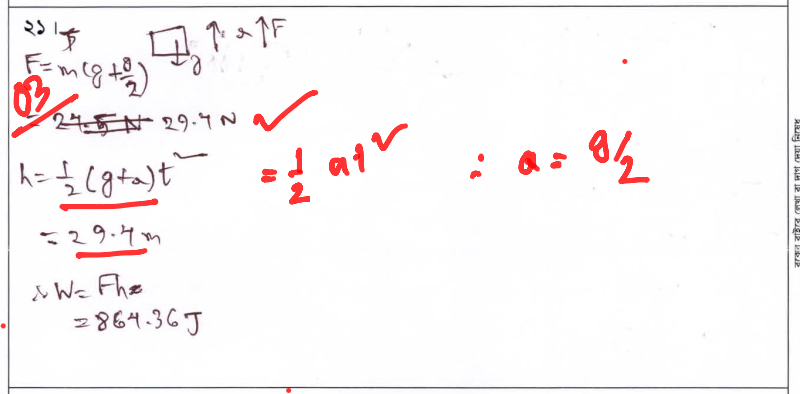 ২১।
a ↑F
F = m(g + g/2)
g
03
= 24.5 N 29.4 N ✓
h = 1/2 (g+a)t² = 1/2 at² ∴ a = g/2
= 29.4 m
∴ W = Fh
= 864.36 J